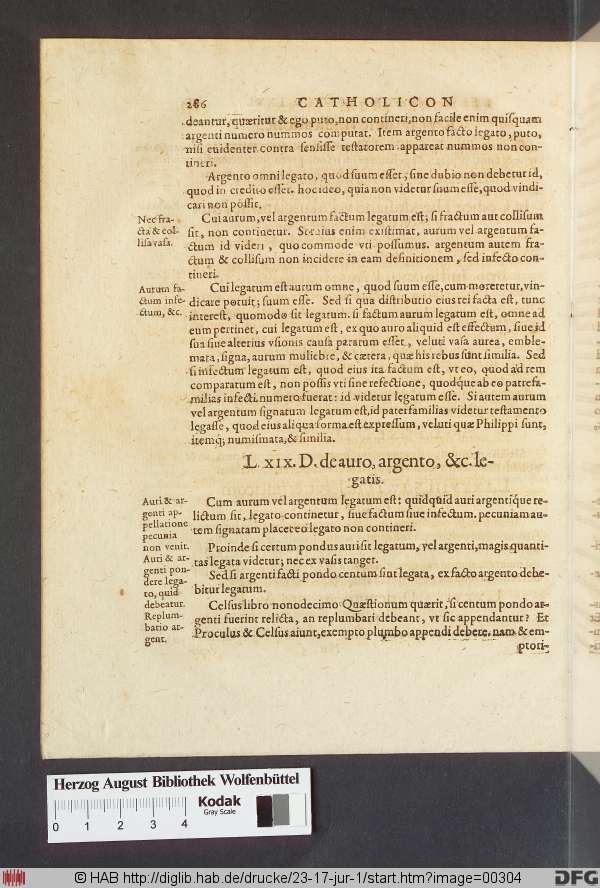 286 CATHOLICON
deantur, quæritur & ego puto, non contineri, non facile enim quisquam
argenti numero nummos computat. Item argento facto legato, puto,
nisi euidenter contra sensisse testatorem appareat nummos non con-
tineri.
Argento omni legato, quod suum esset, sine dubio non debetur id,
quod in credito esset. hoc ideo, quia non videtur suum esse, quod vindi-
cari non possit.
Nec fra-
cta & col-
lisa vasa.
Cui aurum, vel argentum factum legatum est; si fractum aut collisum
sit, non continetur. Seruius enim existimat, aurum vel argentum fa-
ctum id videri, quo commode vti possumus. argentum autem fra-
ctum & collisum non incidere in eam definitionem, sed infecto con-
tineri.
Aurum fa-
ctum infe-
ctum, &c.
Cui legatum est aurum omne, quod suum esse, cum moreretur, vin-
dicare potuit; suum esse. Sed si qua distributio eius rei facta est, tunc
interest, quomodo sit legatum. si factum aurum legatum est, omne ad
eum pertinet, cui legatum est, ex quo auro aliquid est effectum, siue id
sua siue alterius vsionis causa paratum esset, veluti vasa aurea, emble-
mata, signa, aurum muliebre, & cætera, quæ his rebus sunt similia. Sed
si infectum legatum est, quod eius ita factum est, vt eo, quod ad rem
comparatum est, non possis vti sine refectione, quodque ab eo patrefa-
milias infecti numero fuerat: id videtur legatum esse. Si autem aurum
vel argentum signatum legatum est, id paterfamilias videtur testamento
legasse, quod eius aliqua forma est expressum, veluti quæ Philippi sunt,
itemq; numismata, & similia.
L. XIX. D. de auro, argento, &c. le-
gatis.
Auri & ar-
genti ap-
pellatione
pecunia
non venit.
Auri & ar-
genti pon-
dere lega-
to, quid
debeatur.
Replum-
batio ar-
gent.
Cum aurum vel argentum legatum est: quidquid auri argentique re-
lictum sit, legato continetur, siue factum siue infectum. pecuniam au-
tem signatam placet eo legato non contineri.
Proinde si certum pondus auri sit legatum, vel argenti, magis quanti-
tas legata videtur; nec ex vasis tanget.
Sed si argenti facti pondo centum sint legata, ex facto argento debe-
bitur legatum.
Celsus libro nonodecimo Quæstionum quærit, si centum pondo ar-
genti fuerint relicta, an replumbari debeant, vt sic appendantur? Et
Proculus & Celsus aiunt, exempto plumbo appendi debere. nam & em-
ptori-
Herzog August Bibliothek Wolfenbüttel
0 1 2 3 4
Kodak
Gray Scale
© HAB http://diglib.hab.de/drucke/23-17-jur-1/start.htm?image=00304
DFG